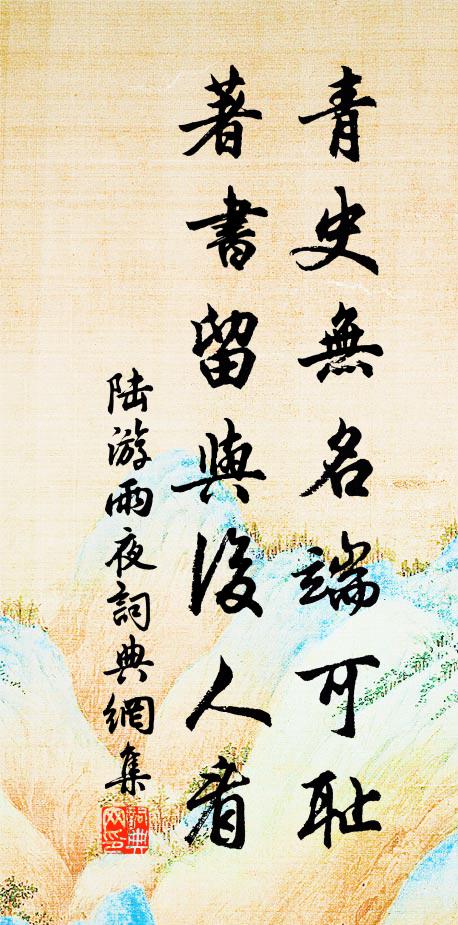 青史無名端可耻
著書留與後人看
陆游雨夜詞典網集
詞典網印